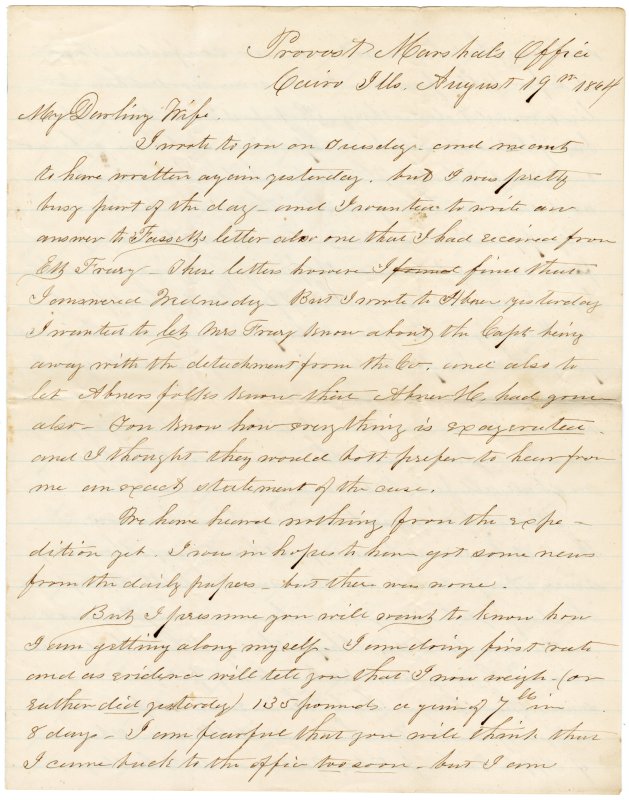 Provost Marshals Office
Cairo Ills. August 19th 1864
My Darling Wife.
I wrote to you on Tuesday - and meant
to have written again yesterday. but I was pretty
busy part of the day - and I wanted to write an
answer to letter also one that I had received from
Frary - These letters however I found find that
I answered Wednesday - But I wrote to Abner yesterday
I wanted to let Mrs Frary know about the Capt being
away with the detachment from the Co. and also to
let Abners folks know that Abner H. had gone
also - You know how everything is exagerated -
and I thought they would both prefer to hear from
me an exact statement of the case.
We have heard nothing from the expe-
dition yet. I was in hopes to have got some news
from the daily papers - but there was none.
But I presume you will want to know how
I am getting along myself - I am doing first rate
and as evidence will tell you that I now weigh - (or
rather did yesterday) 135 pounds a gain of 7 lbs in
8 days - I am fearful that you will think that
I came back to the office too soon - but I am